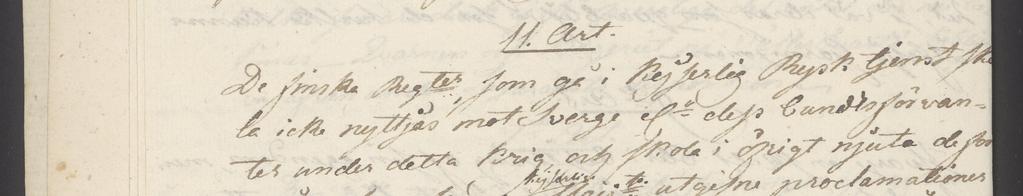 11. Art.
De finska Reg:ter, som gå i Kejserlig Rysk tjenst ska
la icke nyttjas mot Sverge eller dess Bundsförvan-
ter under detta Krig, och skola i öfrigt njuta de
Kejserlig
utgifne proclamationer